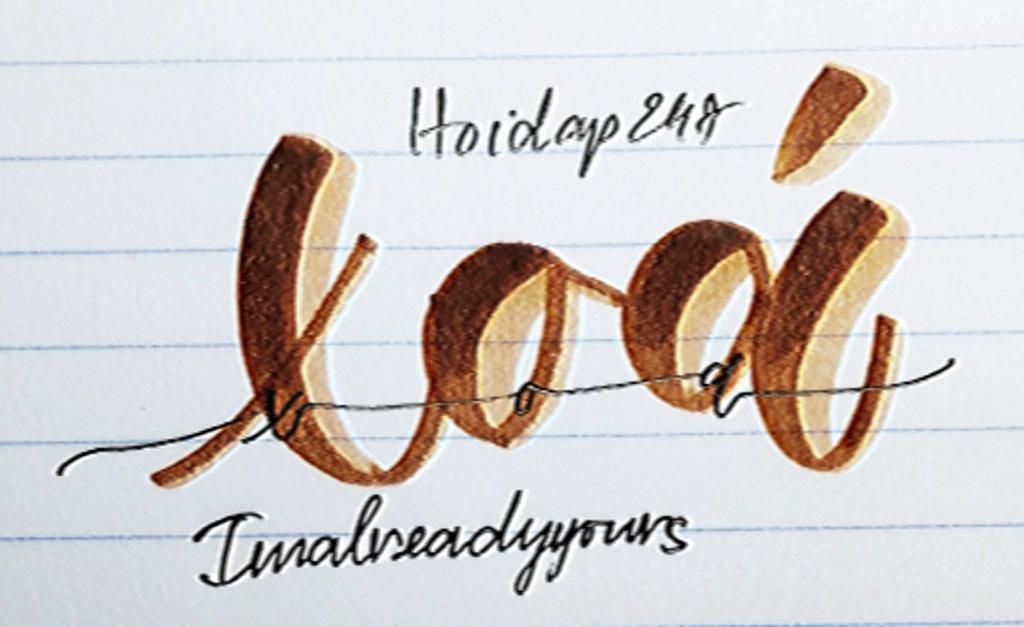 Hoidap247
xoá
xoa
Imalreadyyours